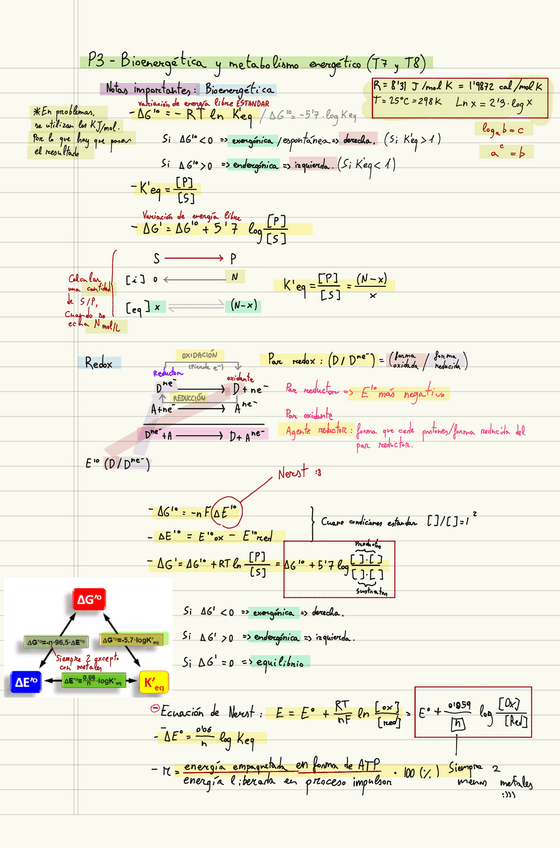 P3 - Bioenergética y metabolismo energético (T7 y T8)
Notas importantes: Bioenergética
R = 8'31 J/mol K = 1'9872 cal/mol K
T = 25°C = 298 K   Ln x = 2'3 · log X
*En problemas,
se utilizan los KJ/mol.
Por lo que hay que pasar
el resultado
variación de energía libre ESTANDAR
- ΔG'° = - RT ln K'eq / ΔG'° = -5'7 · log Keq
log_a b = c
a^c = b
Si ΔG'° < 0 => exergónica / espontánea => derecha. (Si Keq > 1)
Si ΔG'° > 0 => endergónica => izquierda. (Si Keq < 1)
- K'eq = [P]/[S]
Variación de energía libre
- ΔG' = ΔG'° + 5'7 log [P]/[S]
S → P
Calcular
una cantidad
de S/P,
Cuando se
echa N mol/L
[i] 0 ← N
[eq] x ⇌ (N-x)
K'eq = [P]/[S] = (N-x)/x
Redox
OXIDACIÓN
(Pierde e⁻)
Reductor
oxidante
D^ne⁻ → D + ne⁻
REDUCCIÓN
A + ne⁻ → A^ne⁻
D^ne⁻ + A → D + A^ne⁻
E'° (D/D^ne⁻)
Par redox: (D / D^ne⁻) = (forma oxidada / forma reducida)
Par reductor => E'° más negativo
Par oxidante
Agente reductor: forma que cede protones/forma reducida del
par reductor.
Nerst :3
- ΔG'° = -n F ΔE'°
- ΔE'° = E'°ox - E'°red
Cuando condiciones estandar [ ]/[ ] = 1
- ΔG' = ΔG'° + RT ln [P]/[S] = ΔG'° + 5'7 log [ ]·[ ]/[ ]·[ ]
productos
sustratos
ΔG'°
ΔG'°=-n·96,5·ΔE'°
ΔG'°=-5.7·logK'eq
Siempre 2 excepto
con metales
ΔE'°
ΔE'°=0,06/n·logK'eq
K'eq
Si ΔG' < 0 => exergónica => derecha.
Si ΔG' > 0 => endergónica => izquierda.
Si ΔG' = 0 => equilibrio
Ecuación de Nerst: E = E° + RT/nF ln [ox]/[red] = E° + 0'059/n log [Ox]/[Red]
- ΔE° = 0'06/n log Keq
- r = energía empaquetada en forma de ATP / energía liberada en proceso impulsor · 100 (%)
Siempre 2
menos metales
:)))